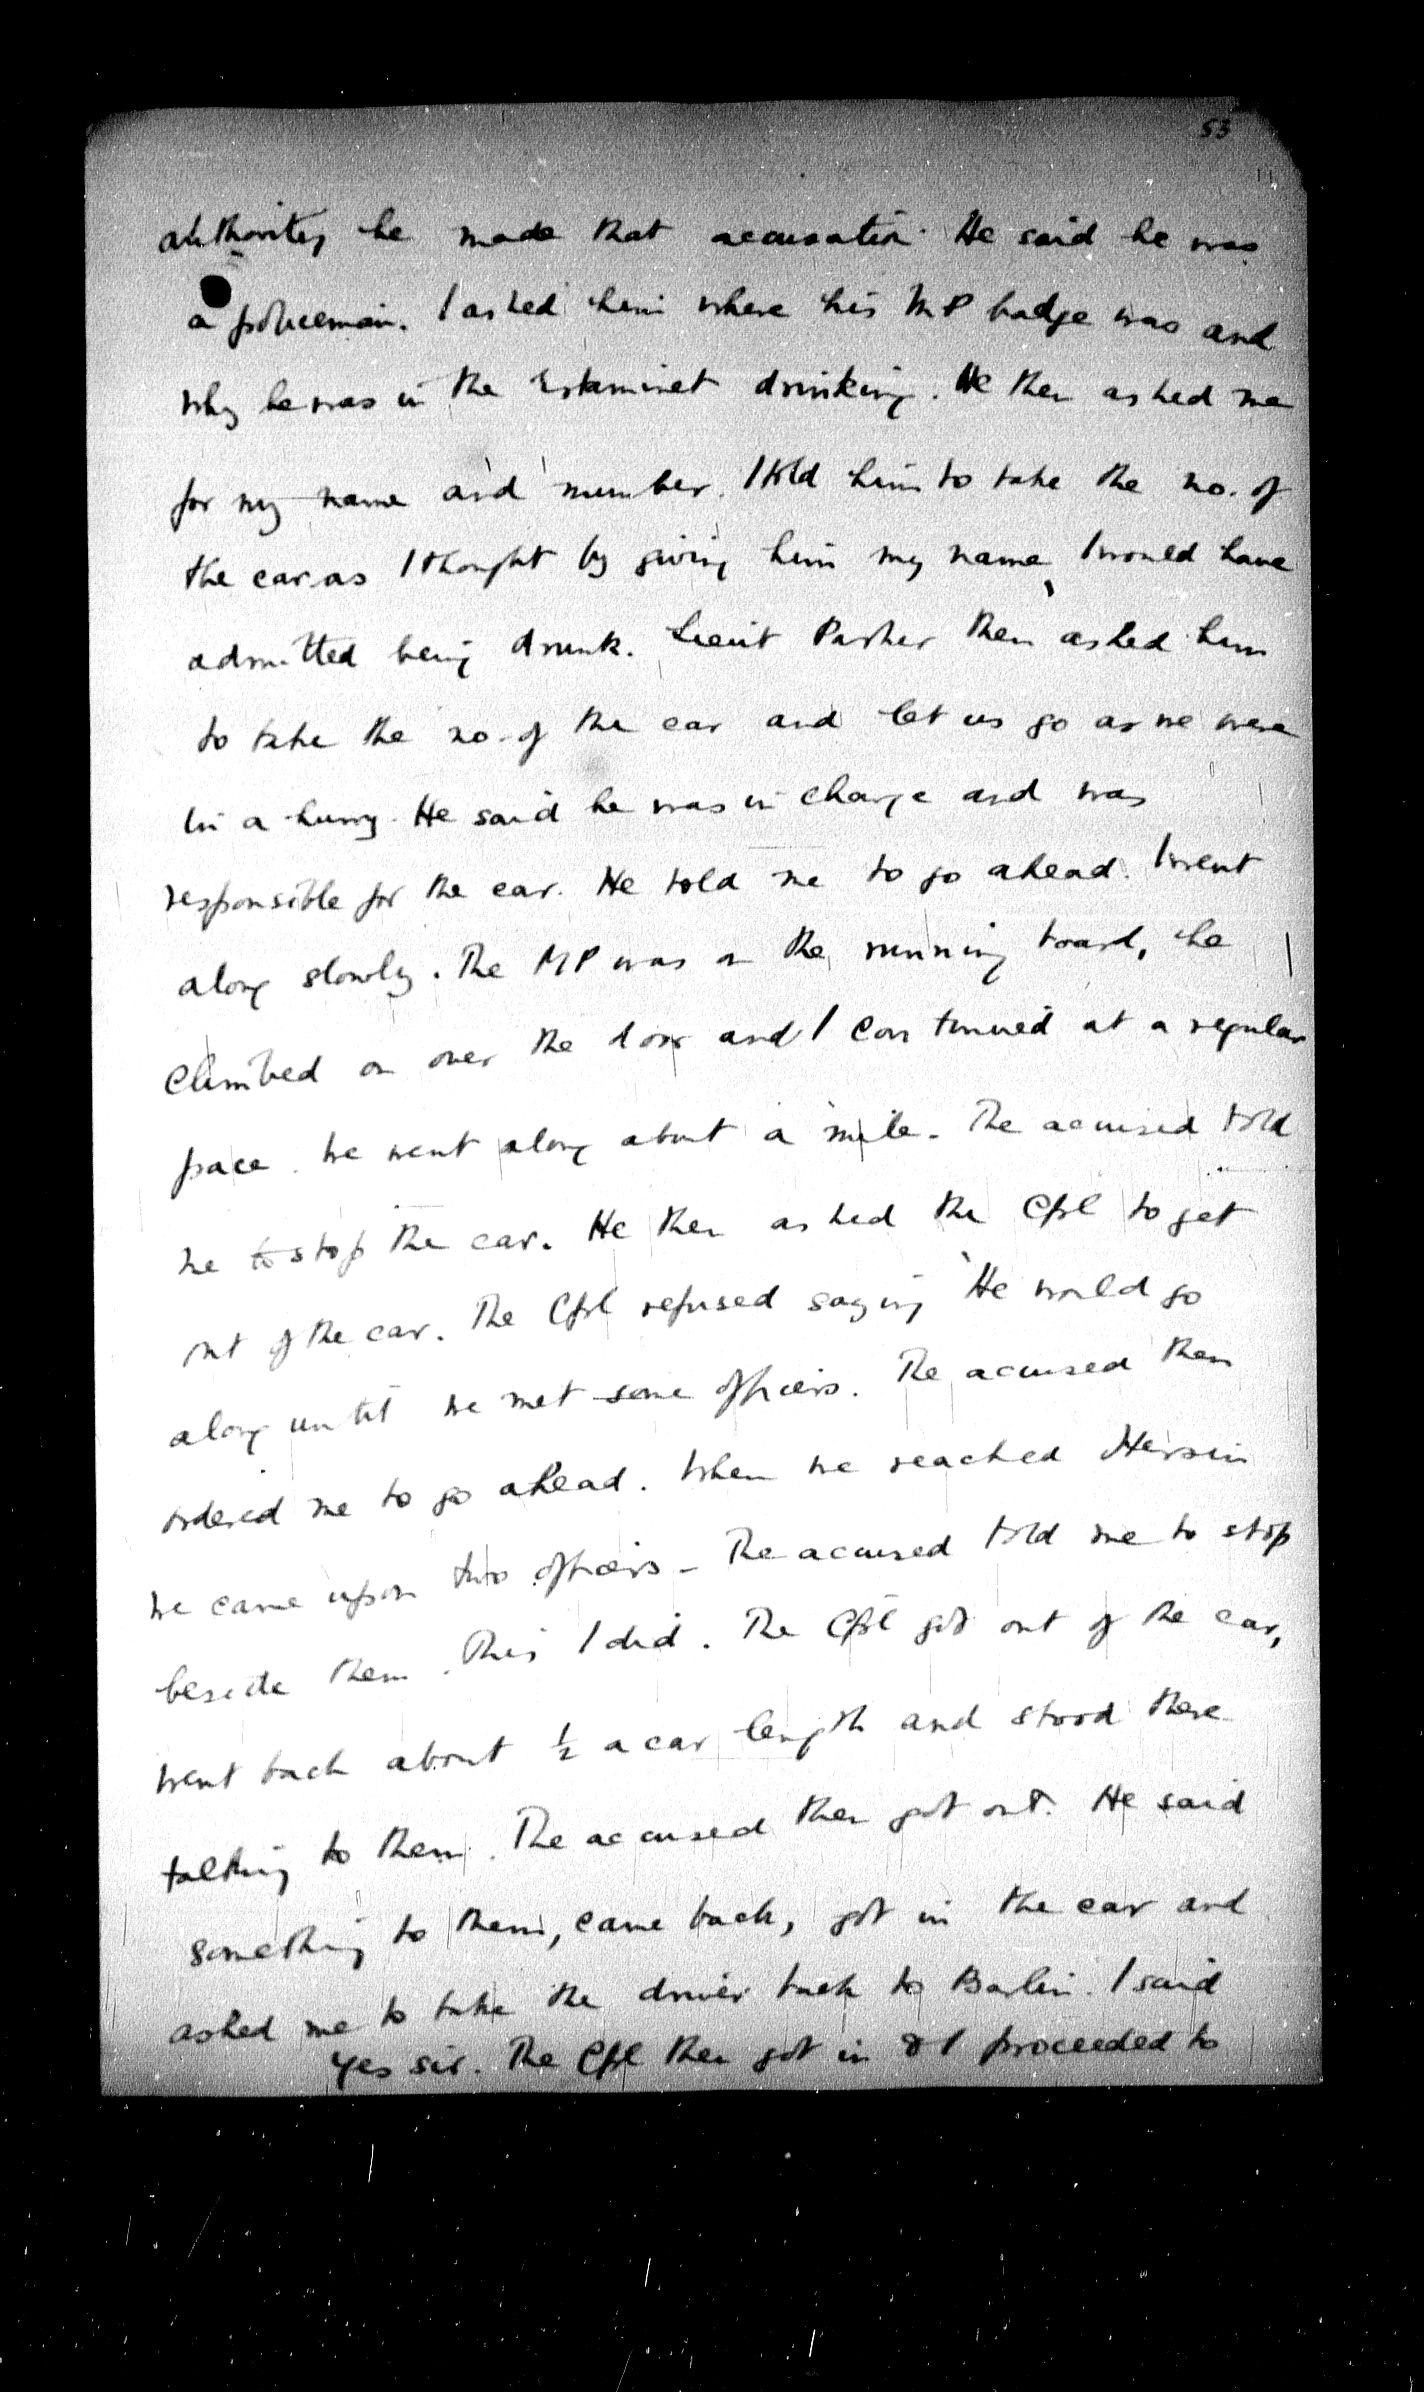 53
authority he made that accusation. He said he was
a policeman. I asked him where his MP badge was and
why he was in the Estaminet drinking. He then asked me
for my name and number. I told him to take the no. of
the car as I thought by giving him my name, I would have
admitted being drunk. Lieut then asked him
to take the no. of the car and let us go as we were
in a hurry. He said he was in charge and was
responsible for the car. He told me to go ahead. I went
along slowly. The MP was on the running board, he
climbed on over the door and I continued at a regular
pace. We went along about a mile. The accused told
me to stop the car. He then asked the Cpl to get
out of the car. The Cpl refused saying "He would go
along until we met some officers. The accused then
ordered me to go ahead. When we reached Hersin
we came upon two officers - The accused told me to stop
beside them. This I did. The Cpl got out of the car,
went back about ½ a car length and stood there
talking to them. The accused then got out. He said
something to them, came back, got in the car and
asked me to take the driver back to Barlin. I said
yes sir. The Cpl then got in & I proceeded to